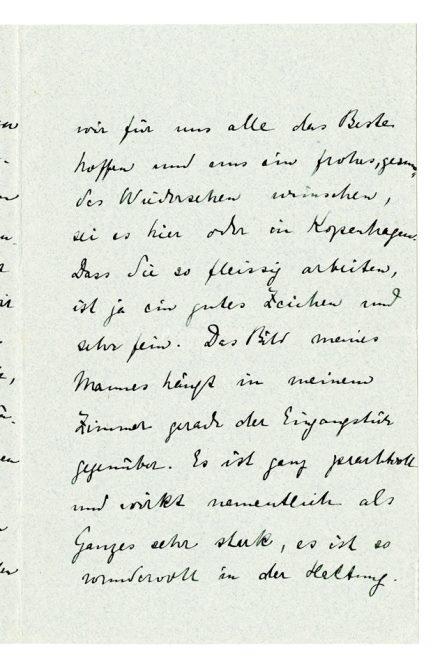 wir für uns alle das Beste
hoffen und uns ein frohes, gesun-
des Wiedersehen wünschen,
sei es hier oder in Kopenhagen.
Dass Sie so fleissig arbeiten,
ist ja ein gutes Zeichen und
sehr fein. Das Bild meines
Mannes hängt in meinem
Zimmer gerade der Eingangstür
gegenüber. Es ist ganz prachtvoll
und wirkt namentlich als
Ganzes sehr stark, es ist so
wundervoll in der Haltung.